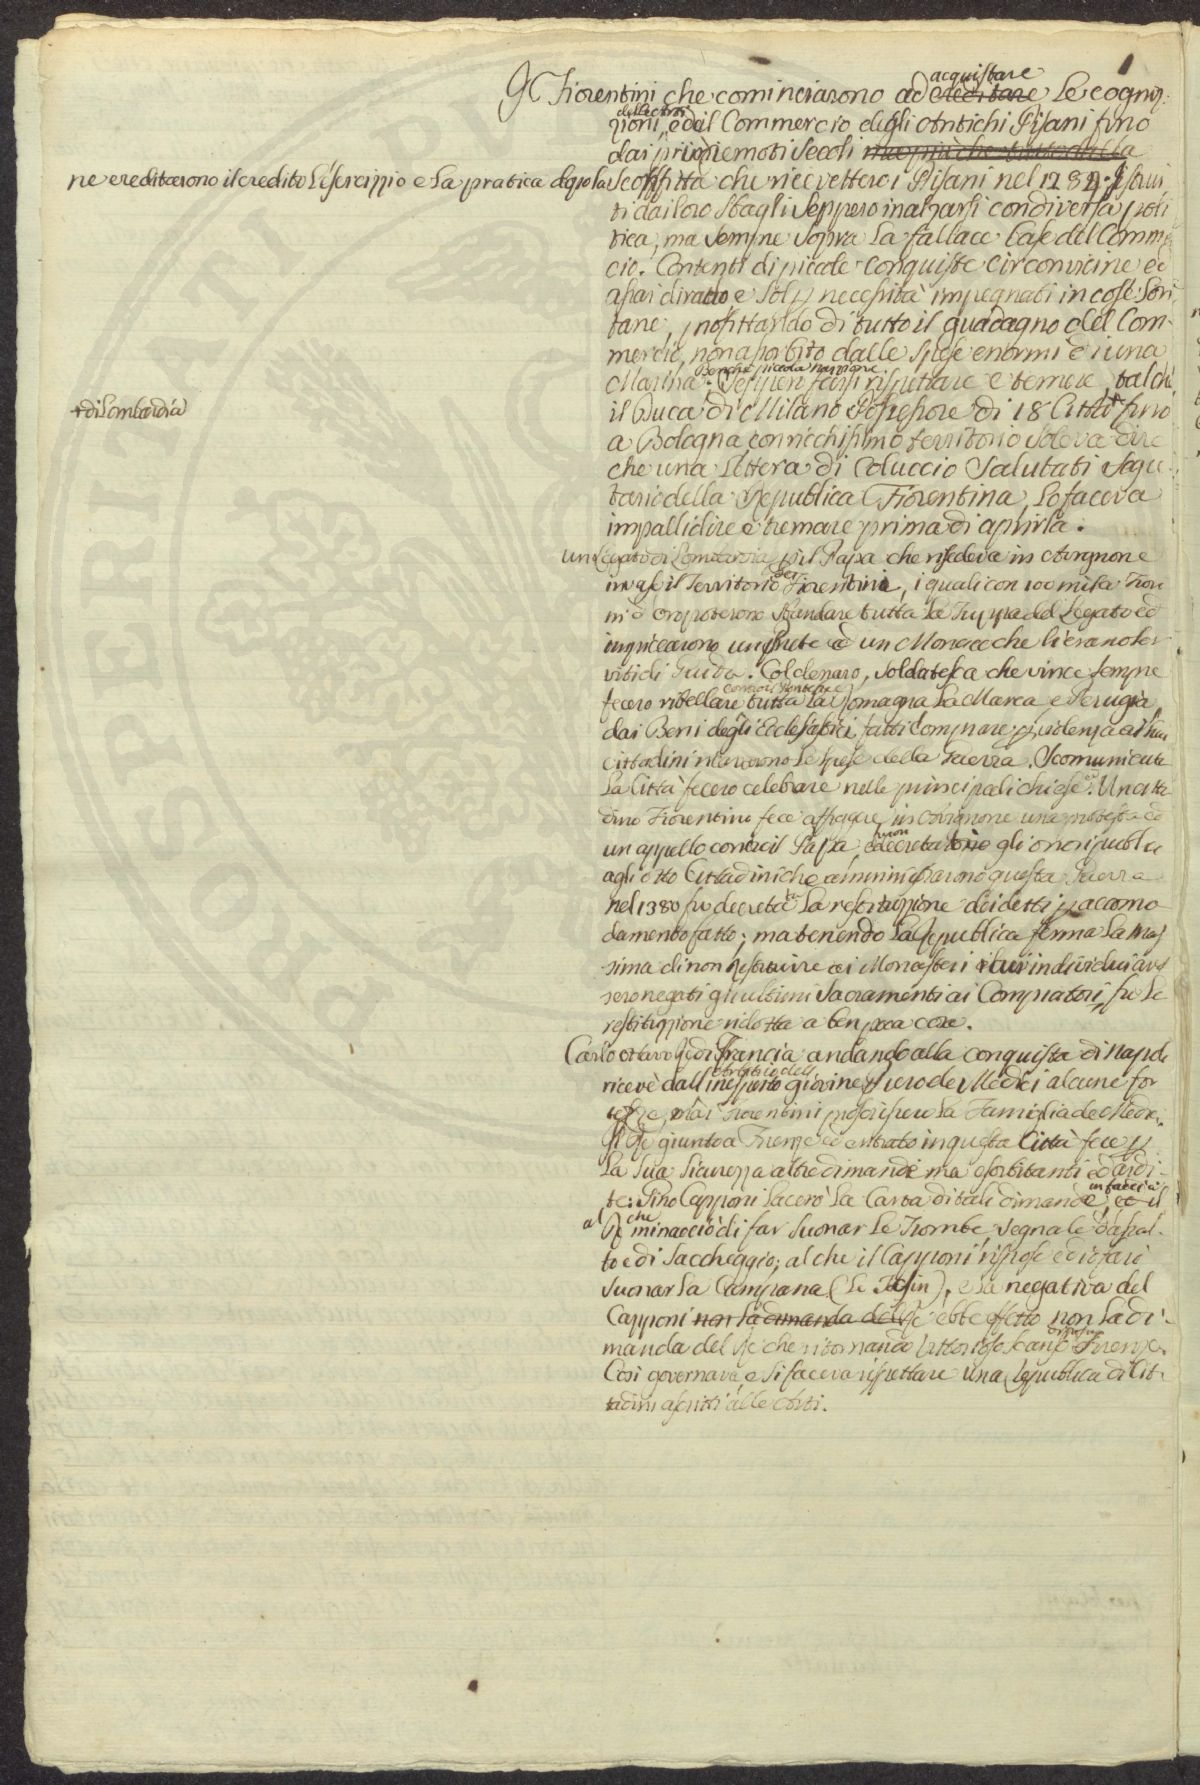 1
acquistare
I Fiorentini che cominciarono ad ereditare le cogni
delle Arti
zioni, e del Commercio degli Antichi Pisani fino
dai più remoti Secoli ma più che tutto dalla
ne ereditarono il credito l'esercizio e la pratica dopo la Sconfitta che ricevettero i Pisani nel 1284. Istrui
ti dai loro Sbagli Seppero inalzarsi con diversa poli
tica, ma sempre sopra la fallace base del Comm
cio. Contenti di piccole conquiste circonvicine ed
assai di rado, e Sol p necessità impegnati in cose lon
tane, profittando di tutto il guadagno del Com
mercio, non assorbito dalle Spese enormi d'una
Benche piccola nazione
Marina. Seppero farsi rispettare e temere, talche
+ di Lombardia
il Duca di Milano Possessore di 18 Città + fino
a Bologna con ricchissimo territorio soleva dire
che una lettera di Coluccio Salutati Segre
tario della Republica Fiorentina, lo faceva
impallidire e tremare prima di aprirla.
un Legato di Lombardia p il Papa che risedeva in Avignone
dei
invase il Territorio Fiorentini, i quali con 100 mila Fiori
ni d'oro poterono sbandare tutta la Truppa del Legato ed
impiccarono un Prete ed un Monaco che li erano ser
viti di Guida. Col denaro, soldatesca che vince sempre
contro il Pontefice
fecero ribellare tutta la Romagna la Marca e Perugia,
dai Beni degli Eclesiastici fatti comprare p violenza ai
cittadini ritrovarono le spese della Guerra. Scomunicata
la Città fecero celebrare nelle principali chiese. Un citta
dino Fiorentino fece affiggere in Avignone una protesta ed
furon
un appello contro il Papa, decretati gli onori publici
agli otto Cittadini che amministrarono questa Guerra
nel 1380 fu decretata la restituzione dei detti p accomo
damento fatto; ma tenendo la Republica ferma la mas
sima di non restituire ai Monasteri i cui individui aves
sero negati gli ultimi Sacramenti ai Compratori, fu la
restituzione ridotta a ben poca cosa.
Carlo ottavo Re di Francia andando alla conquista di Napoli
arbitrio dell
ricevè dall'inesperto giovine Piero de Medici alcune for
tezze, ma i Fiorentini proscrissero la Famiglia de Medici.
Il Re giunto a Firenze ed entrato in questa Città fece p
la sua sicurezza altre dimande ma esorbitanti ed ardi
in faccia
te: Pino Capponi lacerò la Carta di tali dimande, ed il
al Re che minacciò di far suonar le Trombe, segnale d'assal
to e di Saccheggio; al che il Capponi rispose ed io farò
suonar la Campana (Le Tocsin), e la negativa del
Capponi non la dimanda del Re ebbe effetto non la di
manda del Re che ritornando vittorioso scansò Firenze.
Così governava, e si faceva rispettare una Republica di Cit
tadini ascritti alle Arti.